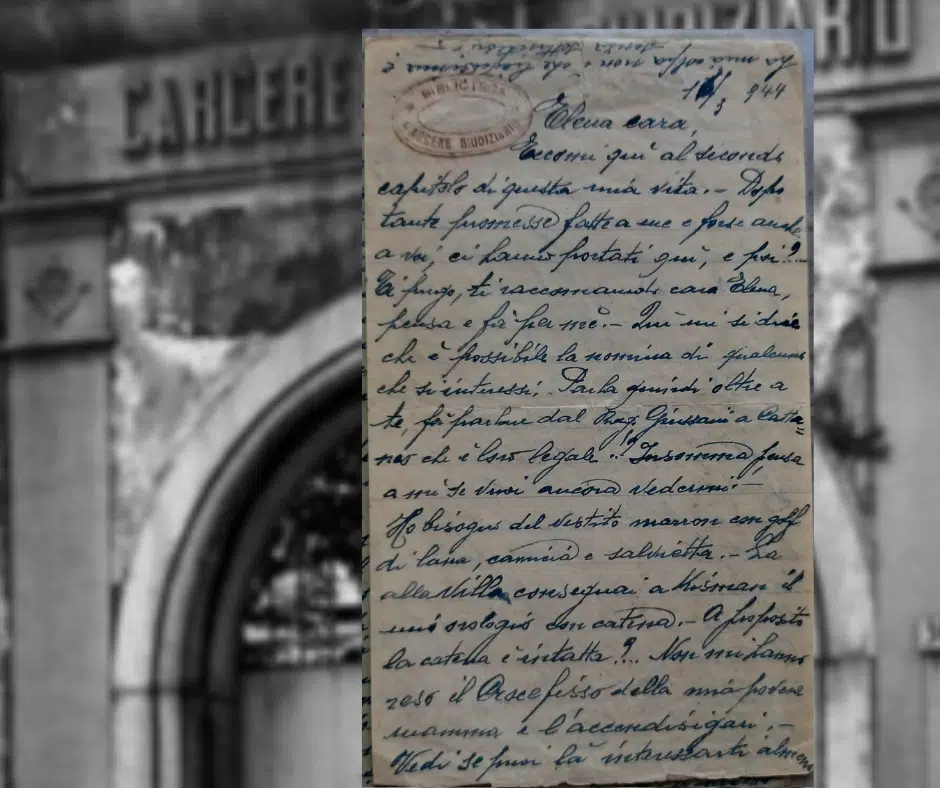 CARCERE
GIUDIZIARIO
la mia colpa non è che
senza
BIBLIOTECA
CARCERE GIUDIZIARIO
3 944
Elena cara,
Eccomi quì al secondo
capitolo di questa mia vita. - Dopo
tante promesse fatte a me e forse anche
a voi, ci hanno portati quì, e poi?...
Ti prego, ti raccomando cara Elena,
pensa e fà per mè. - Quì mi si dice
che è possibile la nomina di qualcuno
che si interessi. - Parla quindi oltre a
te, fà parlare dal Rag. Giussani a
che è legale..!? Insomma pensa
a mè se vuoi ancora vedermi! -
Ho bisogno del vestito marron con golf
di lana, camicia e salvietta. - La
alla Villa consegnai a Kisman il
mio orologio con catena. - A proposito
la catena è intatta?... Non mi hanno
reso il Crocefisso della mia povera
mamma e l'accendisigari. -
Vedi se puoi là interessarti almeno